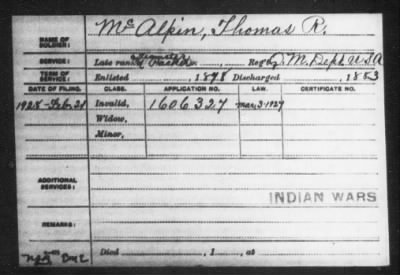 NAME OF SOLDIER: McAlpin, Thomas R.
SERVICE: Late rank Teamster Packer, Reg't Q. M. Dept. USA
TERM OF SERVICE: Enlisted , 1878 Discharged , 1883
DATE OF FILING. CLASS. APPLICATION NO. LAW. CERTIFICATE NO.
1928-Feb. 21 Invalid, 1606327 Mar. 3-1927
Widow,
Minor,
ADDITIONAL SERVICES:
INDIAN WARS
REMARKS:
Died , 1 , at